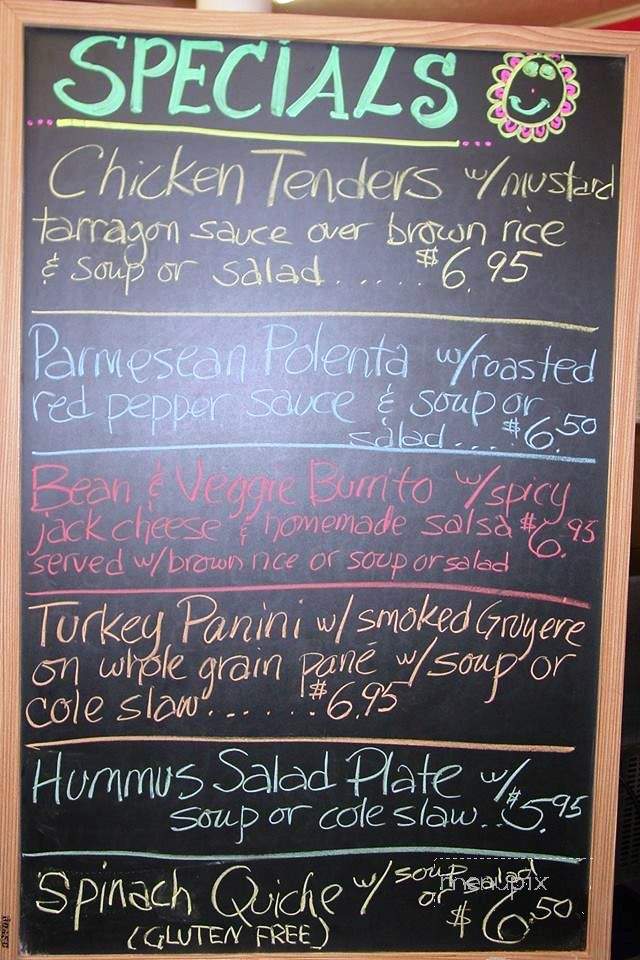 SPECIALS
Chicken Tenders w/mustard
tarragon sauce over brown rice
& soup or salad..... $6.95
Parmesean Polenta w/roasted
red pepper sauce & soup or
salad... $6.50
Bean & Veggie Burrito w/spicy
jack cheese & homemade salsa $6.95
served w/brown rice or soup or salad
Turkey Panini w/ smoked Gruyere
on whole grain pané w/soup or
cole slaw...... $6.95
Hummus Salad Plate w/
soup or cole slaw.. $5.95
Spinach Quiche w/ soup or salad
(GLUTEN FREE) $6.50
menupix